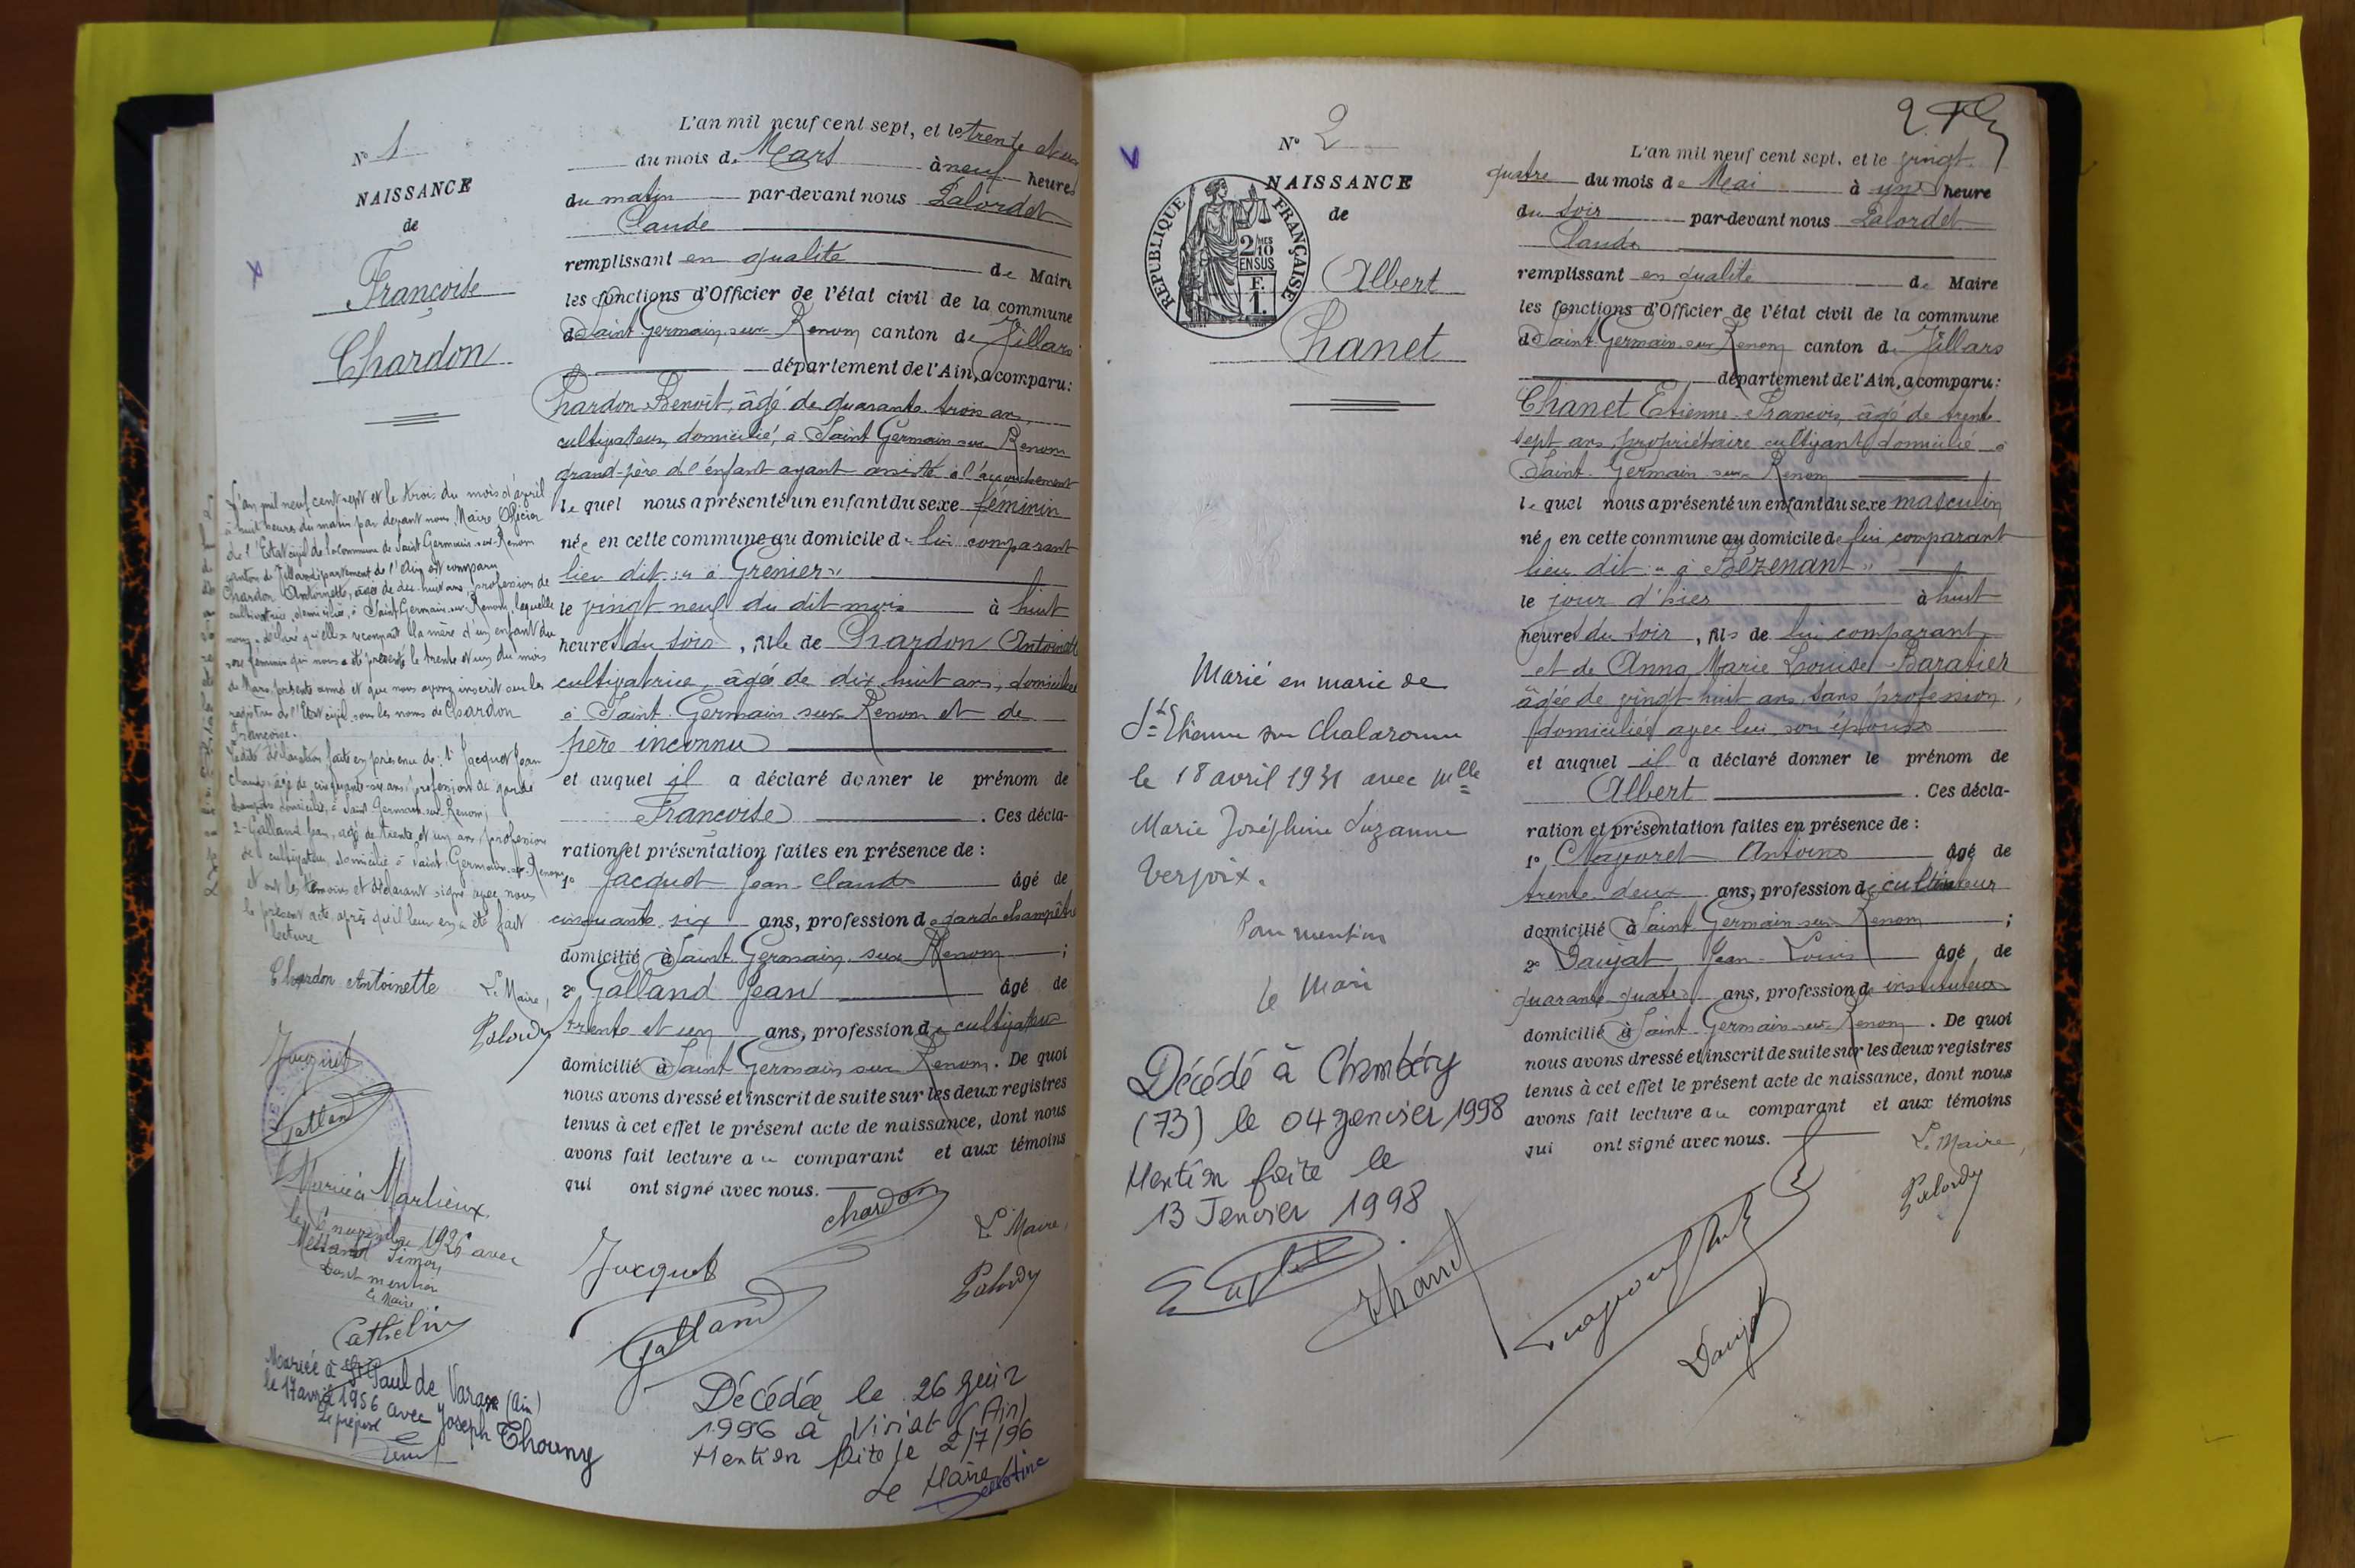 N° 1
NAISSANCE
de
Françoise
Chardon
L'an mil neuf cent sept, et le trente et un
du mois de Mars à neuf heures
du matin par-devant nous Palordet
Claude
remplissant en qualité de Maire
les fonctions d'Officier de l'état civil de la commune
de Saint Germain sur Renom canton de Villars
département de l'Ain, a comparu:
Chardon Benoit, âgé de quarante trois ans,
cultivateur, domicilié, à Saint Germain sur Renom
grand-père de l'enfant ayant assisté à l'accouchement
lequel nous a présenté un enfant du sexe féminin
née en cette commune au domicile de lui comparant
lieu dit : « à Grenier »
le vingt neuf du dit mois à huit
heures du soir, fille de Chardon Antoinette
cultivatrice, âgée de dix huit ans, domiciliée
à Saint Germain sur Renom et de
père inconnu
et auquel il a déclaré donner le prénom de
Françoise. Ces décla-
ration et présentation faites en présence de :
1° Jacquet Jean-Claude âgé de
cinquante six ans, profession de garde champêtre
domicilié à Saint Germain sur Renom ;
2° Galland Jean âgé de
trente et un ans, profession de cultivateur
domicilié à Saint Germain sur Renom. De quoi
nous avons dressé et inscrit de suite sur les deux registres
tenus à cet effet le présent acte de naissance, dont nous
avons fait lecture au comparant et aux témoins
qui ont signé avec nous.
Chardon
Le Maire,
Jacquet
Palordet
Galland
Décédée le 26 juin
1996 à Viriat (Ain)
Mention faite le 2/7/96
Le Maire
L'an mil neuf cent sept et le trois du mois d'avril
à huit heures du matin par devant nous, Maire Officier
de l'Etat civil de la commune de Saint Germain-sur-Renom
canton de Villars département de l'Ain est comparu
Chardon Antoinette, âgée de dix huit ans, profession de
cultivatrice, domiciliée, à Saint Germain-sur-Renom, laquelle
nous a déclaré qu'elle reconnait la mère d'un enfant du
sexe féminin qui nous a été présenté le trente et un du mois
de Mars présente année et que nous avons inscrit sur les
registres de l'Etat civil sous les noms de Chardon
Françoise.
Ladite déclaration faite en présence de : 1° Jacquet Jean
Claude âgé de cinquante-six ans, profession de garde
champêtre domicilié, à Saint Germain-sur-Renom;
2° Galland Jean, âgé de trente et un ans, profession
de cultivateur, domicilié à Saint-Germain-sur-Renom
et ont les témoins et déclarant signé avec nous
le présent acte après qu'il leur en a été fait
lecture
Chardon Antoinette
Le Maire,
Palordet
Jacquet
Galland
Mariée à Marlieux
le 6 novembre 1926 avec
Simon
Dont mention
Le Maire
Cathelin
Mariée à St Paul de Varax (Ain)
le 17 avril 1956 avec Joseph Thouny
Le préposé
2
N° 2
NAISSANCE
de
Albert
Chanet
REPUBLIQUE FRANÇAISE
2/10 MES
EN SUS
F.
1.
L'an mil neuf cent sept, et le vingt
quatre du mois de Mai à une heure
du soir par-devant nous Palordet
Claude
remplissant en qualité de Maire
les fonctions d'Officier de l'état civil de la commune
de Saint Germain sur Renom canton de Villars
département de l'Ain, a comparu:
Chanet Etienne-François, âgé de trente
sept ans, propriétaire cultivant domicilié à
Saint-Germain-sur-Renom
lequel nous a présenté un enfant du sexe masculin
né, en cette commune au domicile de lui comparant
lieu dit : « à Bézenant »
le jour d'hier à huit
heures du soir, fils de lui comparant
et de Anna Marie Louise Baratier
âgée de vingt huit ans, sans profession,
domiciliée avec lui, son épouse
et auquel il a déclaré donner le prénom de
Albert. Ces décla-
ration et présentation faites en présence de :
1° Antoine âgé de
trente deux ans, profession de cultivateur
domicilié à Saint Germain sur Renom ;
2° Daujat Jean-Louis âgé de
quarante quatre ans, profession de instituteur
domicilié à Saint-Germain-sur-Renom. De quoi
nous avons dressé et inscrit de suite sur les deux registres
tenus à cet effet le présent acte de naissance, dont nous
avons fait lecture au comparant et aux témoins
qui ont signé avec nous.
Le Maire,
Palordet
Chanet
Daujat
Marié en marie de
St Etienne sur Chalaronne
le 18 avril 1931 avec Mlle
Marie Joséphine Suzanne
Verjoix.
Pour mention
le Mari
Décédé à Chambéry
(73) le 04 janvier 1998
Mention faite le
13 Janvier 1998